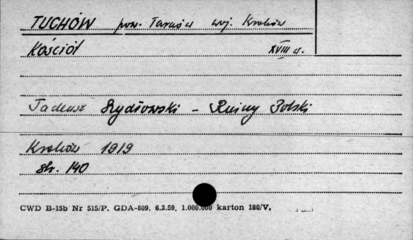 TUCHÓW pow. Tarnów woj. Kraków
Kościół XVIII w.
Tadeusz Szydłowski - Ruiny Polski
Kraków 1919
str. 140
CWD B-15b Nr 515/P. GDA-809. 6.3.59, 1.000.000 karton 180/V.